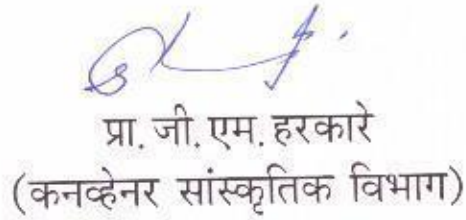 प्रा. जी. एम. हरकारे
(कनव्हेनर सांस्कृतिक विभाग)